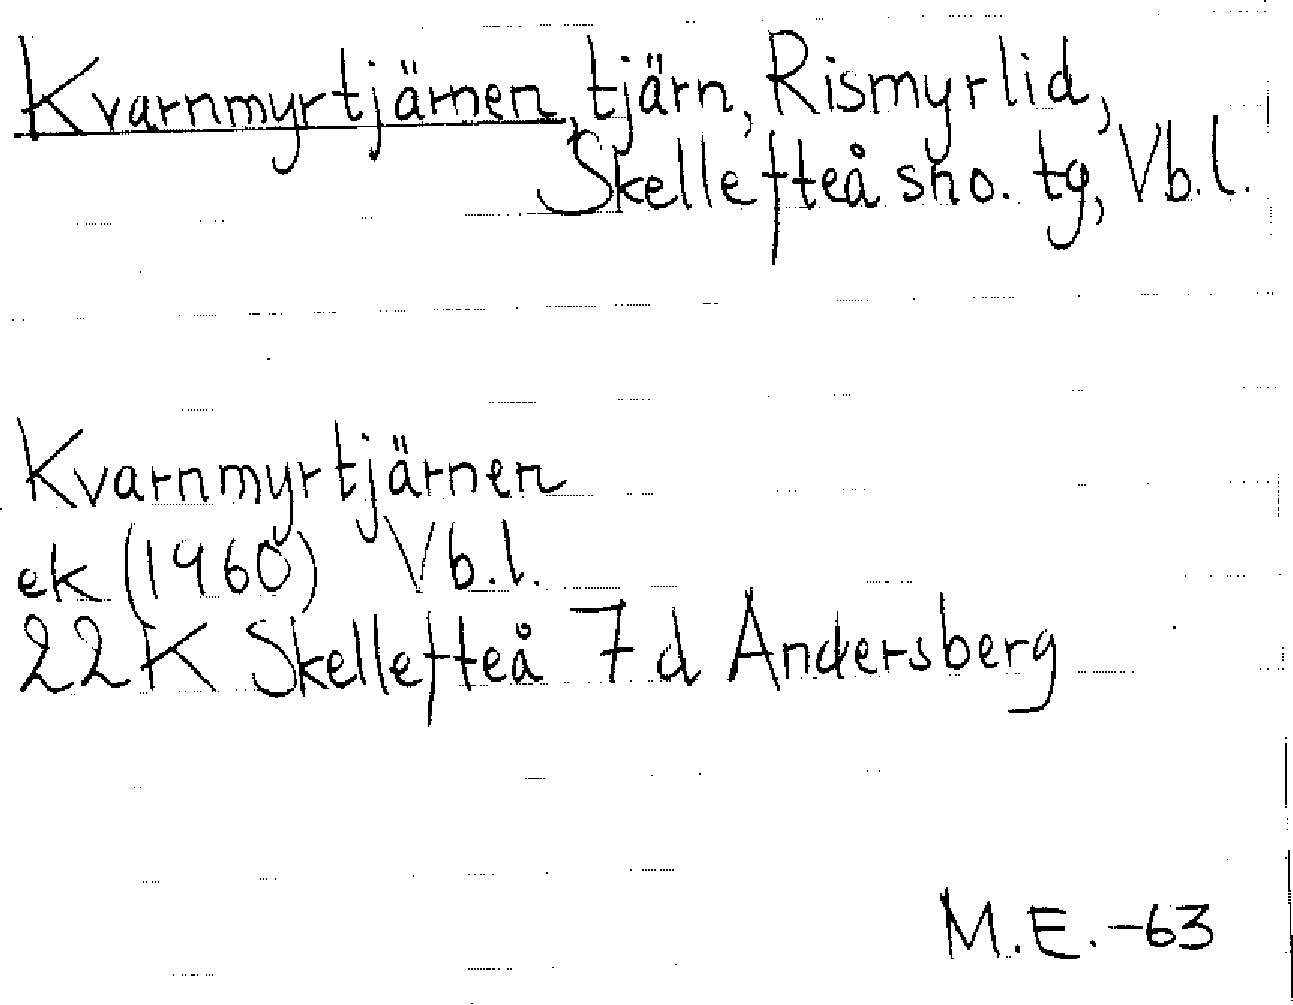 Kvarnmyrtjärnen, tjärn, Rismyrlid,
Skellefteå sno. tg, Vb.l.
Kvarnmyrtjärnen
ek (1960) Vb.l.
22K Skellefteå 7d Andersberg
M.E.-63